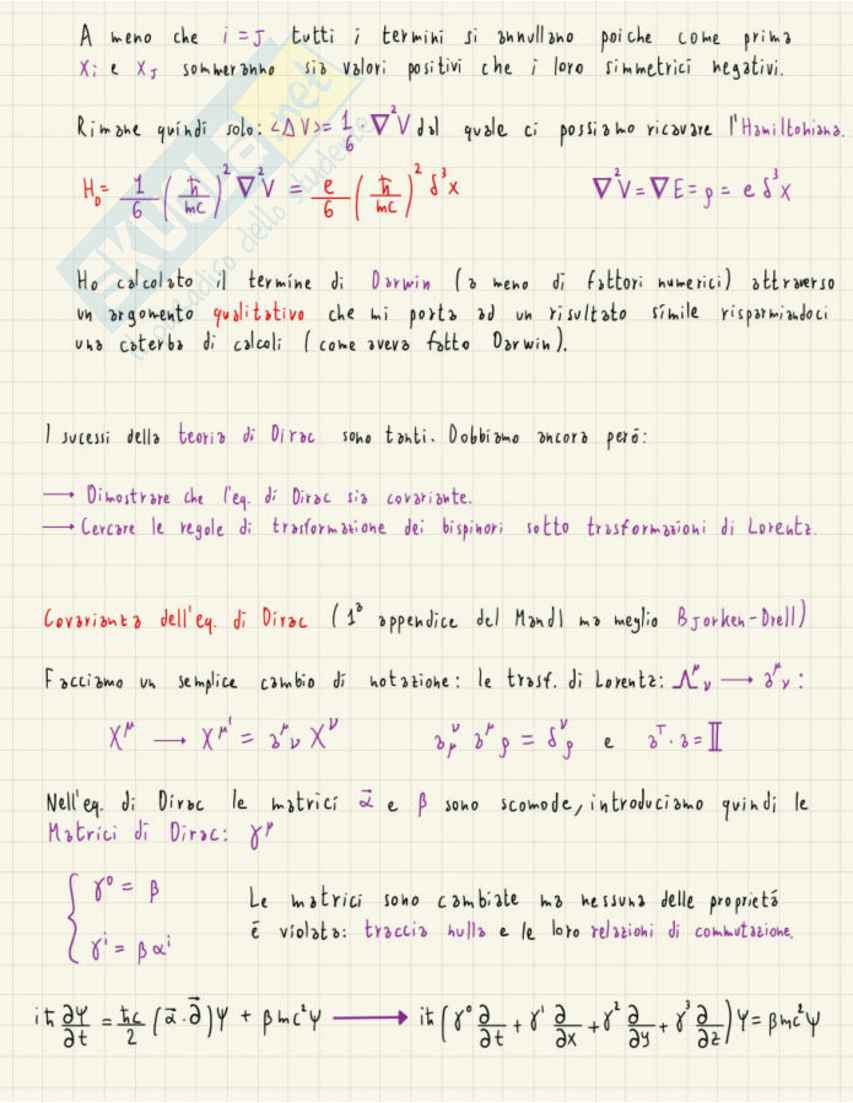 A meno che i = J tutti i termini si annullano poiche come prima
Xᵢ e X_J sommeranno sia valori positivi che i loro simmetrici negativi.
Rimane quindi solo: <ΔV> = 1/6 · ∇²V dal quale ci possiamo ricavare l'Hamiltoniana.
H_D = 1/6 (ħ/mc)² ∇²V = e/6 (ħ/mc)² δ³x    ∇²V = ∇E = ρ = e δ³x
Ho calcolato il termine di Darwin (a meno di fattori numerici) attraverso
un argomento qualitativo che mi porta ad un risultato simile risparmiandoci
una caterba di calcoli (come aveva fatto Darwin).
I sucessi della teoria di Dirac sono tanti. Dobbiamo ancora peró:
→ Dimostrare che l'eq. di Dirac sia covariante.
→ Cercare le regole di trasformazione dei bispinori sotto trasformazioni di Lorentz.
Covarianza dell'eq. di Dirac (1ª appendice del Mandl ma meglio BJorken-Drell)
Facciamo un semplice cambio di notazione: le trasf. di Lorentz: Λ^μ_ν → a^μ_ν :
X^μ → X^μ' = a^μ_ν X^ν    a_μ^ν a^μ_ρ = δ^ν_ρ e a^T · a = 𝕀
Nell'eq. di Dirac le matrici α⃗ e β sono scomode, introduciamo quindi le
Matrici di Dirac: γ^μ
{ γ⁰ = β
Le matrici sono cambiate ma nessuna delle proprietá
é violata: traccia nulla e le loro relazioni di commutazione.
γ^i = β α^i
iħ ∂ψ/∂t = ħc/2 (α⃗ · ∂⃗)ψ + βmc²ψ → iħ (γ⁰ ∂/∂t + γ¹ ∂/∂x + γ² ∂/∂y + γ³ ∂/∂z) ψ = βmc²ψ
SKUOLA.net